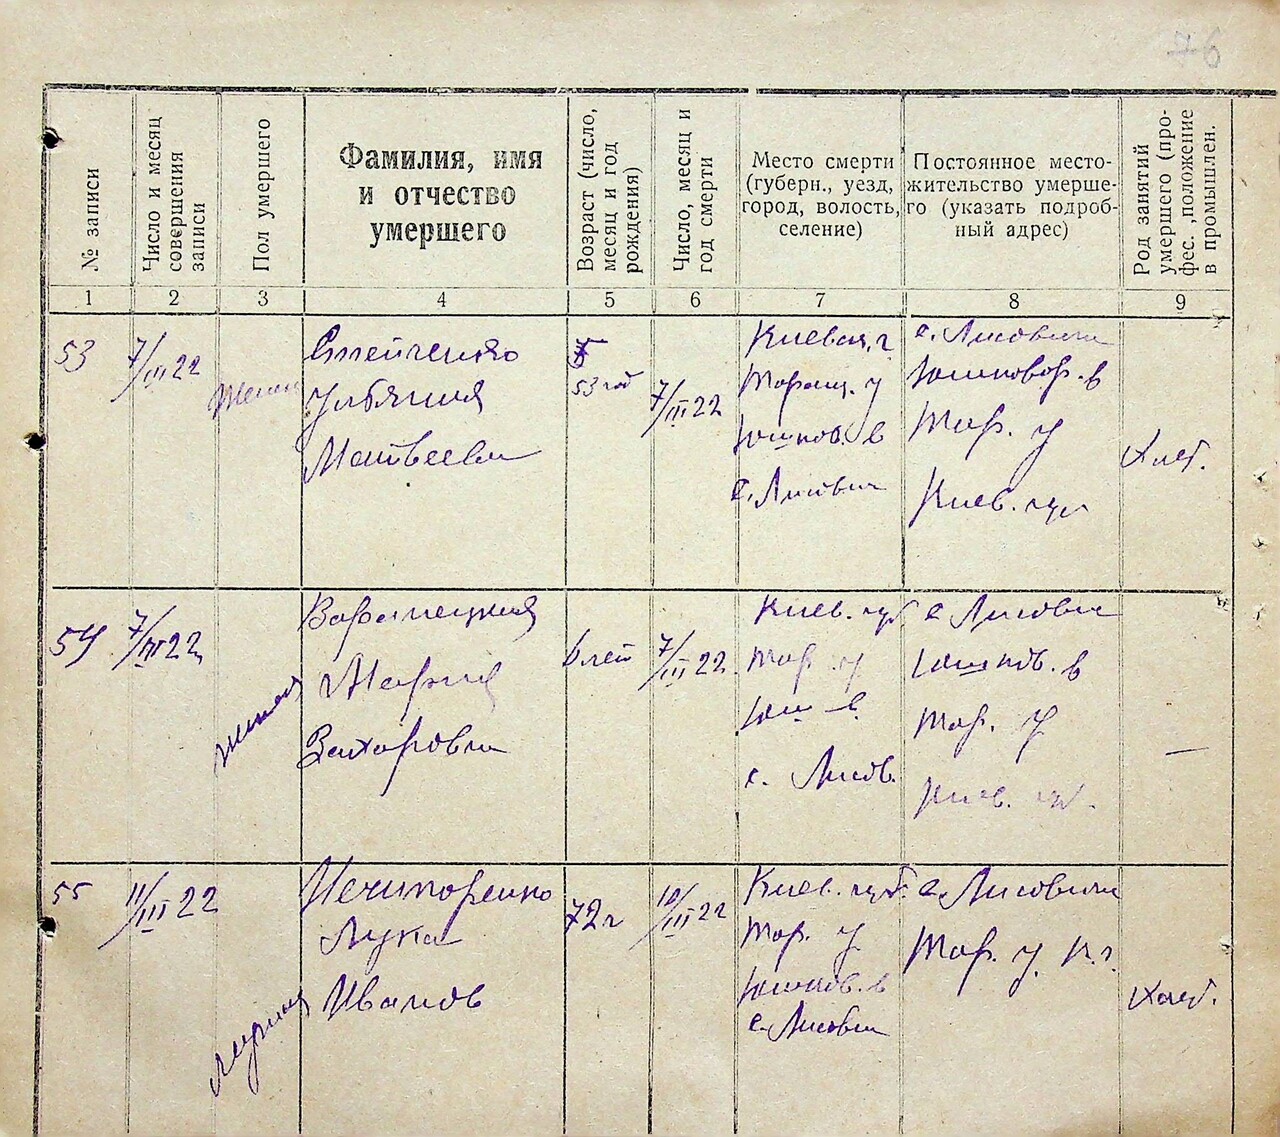 76
№ записи
Число и месяц
совершения
записи
Пол умершего
Фамилия, имя
и отчество
умершего
Возраст (число,
месяц и год
рождения)
Число, месяц и
год смерти
Место смерти
(губерн., уезд,
город, волость,
селение)
Постоянное место-
жительство умерше-
го (указать подроб-
ный адрес)
Род занятий
умершего (про-
фес., положение
в промышлен.
1 2 3 4 5 6 7 8 9
53
7/III 22
Женск
Ульяния
Матвеевна
53 год
7/III 22
Таращ. у
Юшков. в
с. Лисович
с. Лисовичи
Юшковор. в
Тар. у
Киев. губ
Хлеб.
54
7/III 22
женск
Мария
Захаровна
6 лет
7/III 22
Киев. губ
Тар. у
Юш в.
с. Лисов.
с Лисович
Юшков. в
Тар. у
Киев. губ.
—
55
11/III 22
мужчин
Нечипоренко
Лука
Иванов
72 г
10/III 22
Киев. губ.
Тар. у
Юшков. в
с. Лисович
с. Лисовичи
Тар. у К. г.
Хлеб.